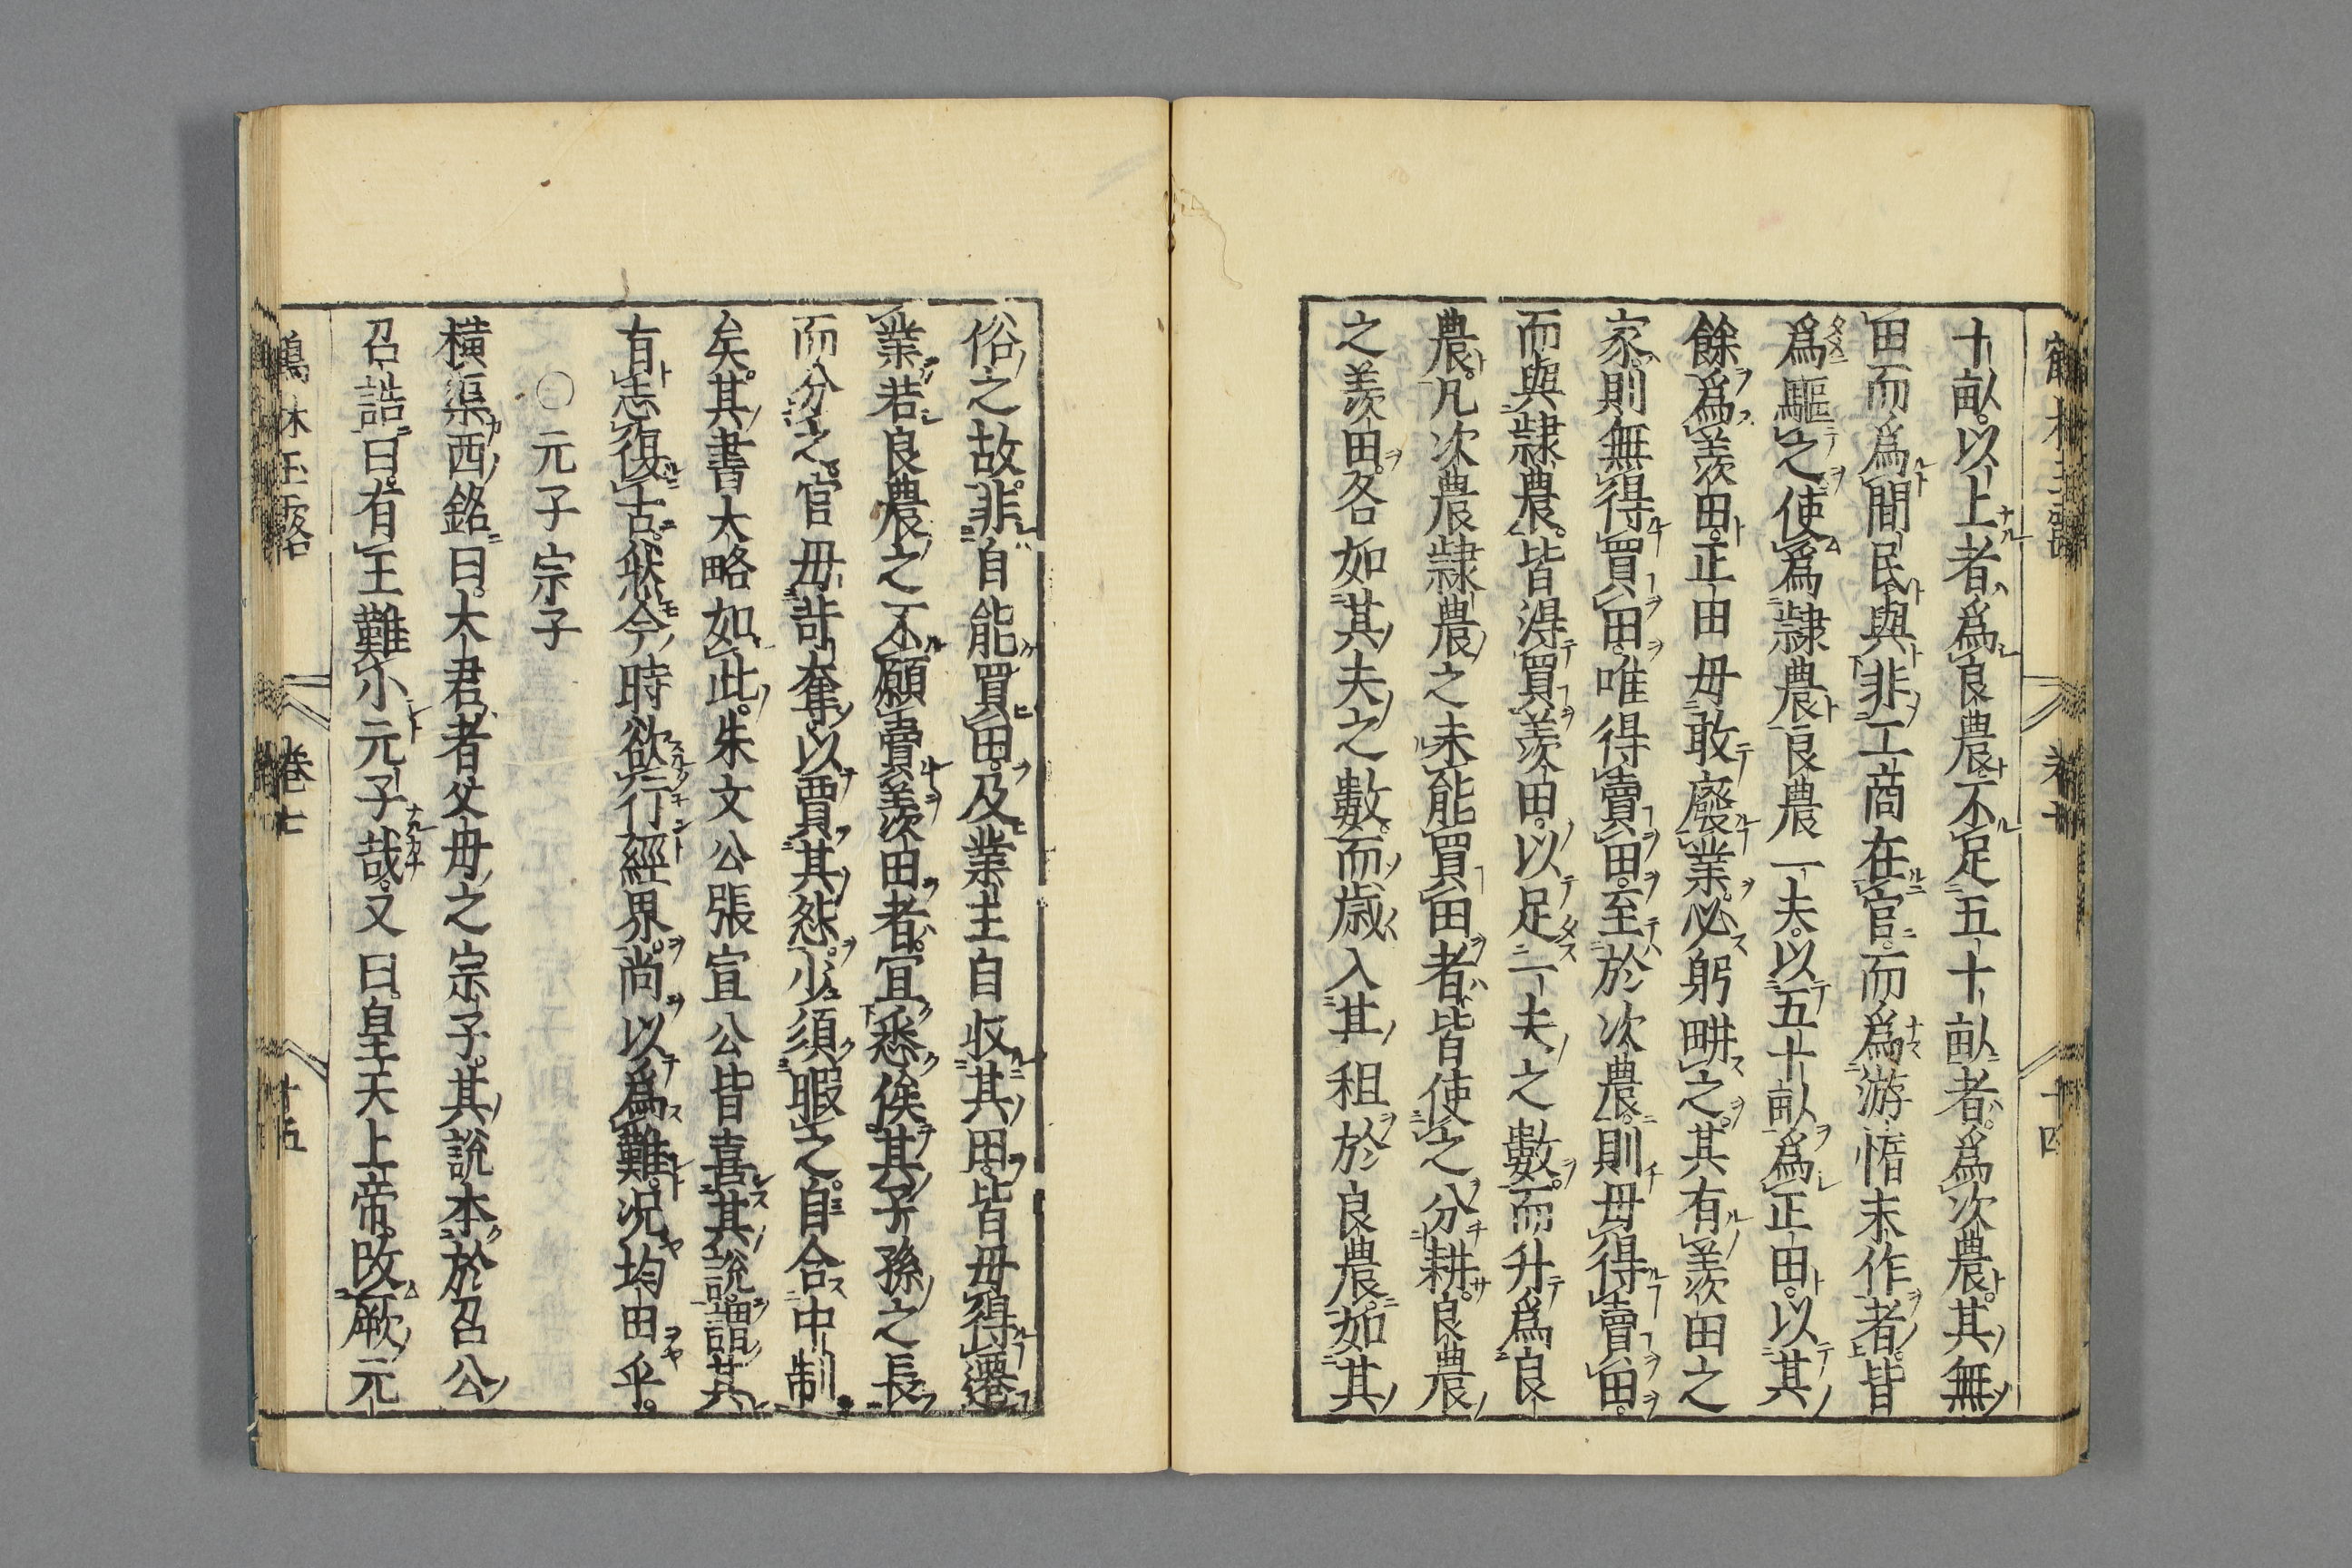 鶴林玉露
卷七
十四
十畝。以上者爲良農。不足五十畝者。爲次農。其無
田而爲間民與非工商在官。而爲游惰末作者。皆
爲驅之使爲隷農。良農一夫。以五十畝爲正田。以其
餘爲羡田。正田毋敢廢業。必躬畊之。其有羡田之
家。則無得買田。唯得賣田。至於次農。則毋得賣田。
而與隷農。皆得買羡田。以足一夫之數。而升爲良
農。凡次農隷農之未能買田者。皆使之分耕。良農
之羡田。各如其夫之數。而歳入其租於良農。如其
俗之故。非自能買田。及業主自収其田。皆毋得遷
業。若良農之不願賣羡田者。宜悉俟其子孫之長
而分之。官毋苛奪以賈其怨。少須暇之。自合中制
矣。其書大略如此。朱文公張宣公皆喜其說。謂其
有志復古。然今時欲行經界。尚以爲難。況均田乎。
〇元子宗子
橫渠西銘曰。大君者父毋之宗子。其說本於召公
召誥曰。有王難小元子哉。又曰。皇天上帝。改厥元
鶴林玉露
卷七
十五